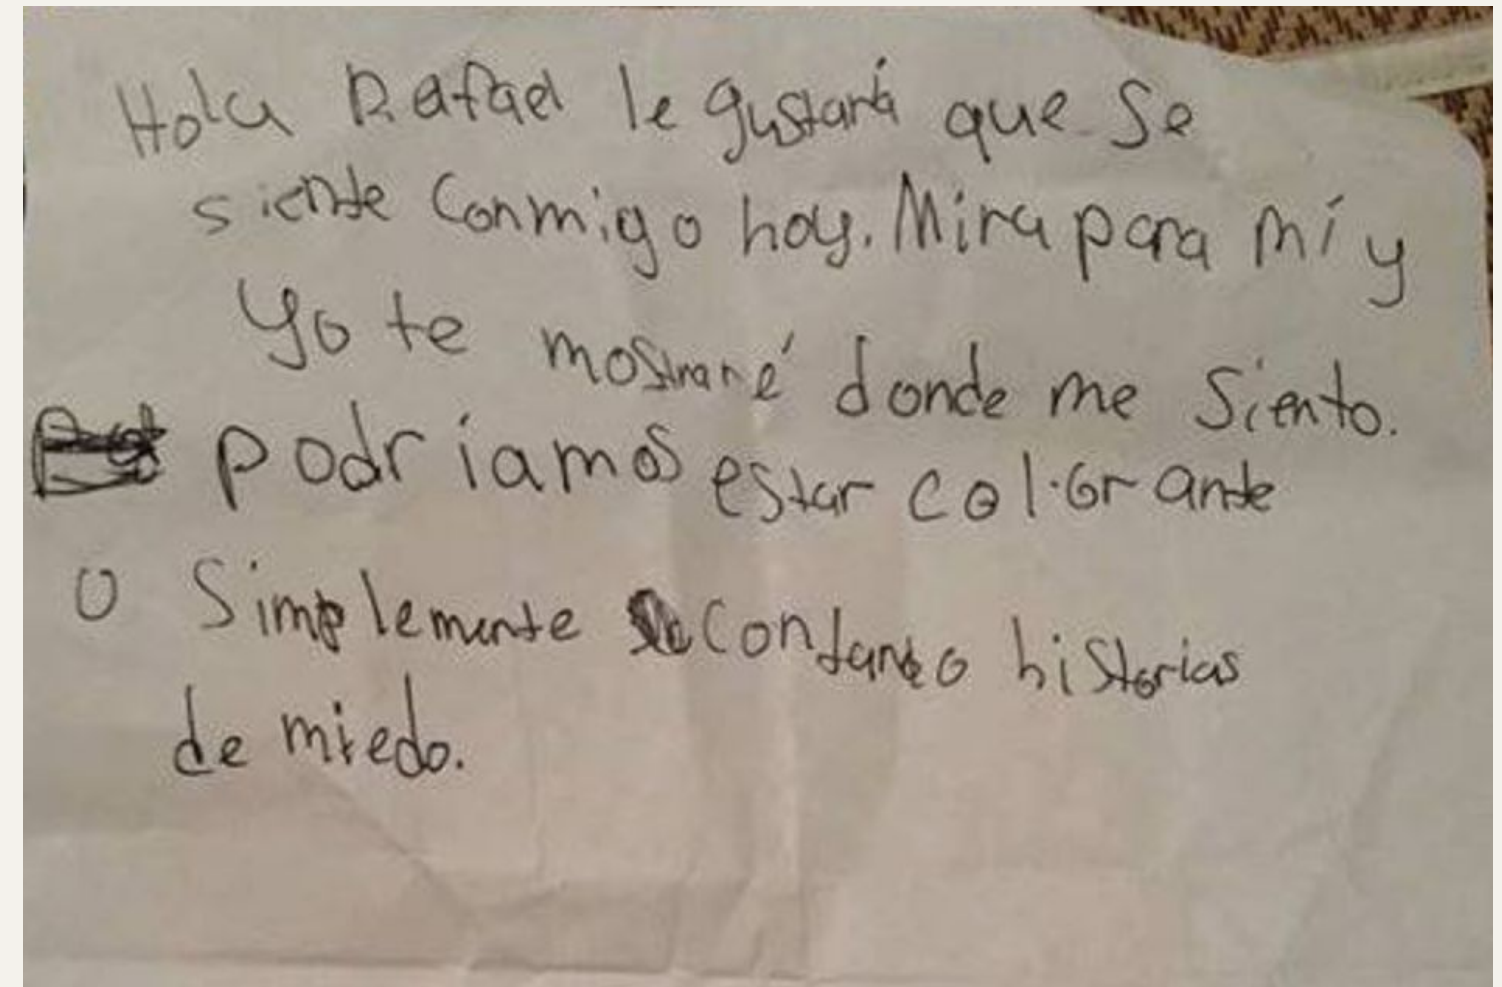 Hola Rafael le gustará que se
siente conmigo hoy. Mira para mí y
Yo te mostraré donde me siento.
podriamos estar col.Grante
O Simplemente contando historias
de miedo.